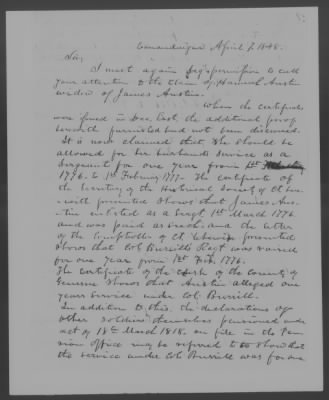 Canandaigua April 7. 1848.
Sir,
I must again beg permission to call
your attention to the claim of Hannah Austin
widow of James Austin.
When the certificate
were issued in Dec. last the additional proof
herewith furnished had not been discovered.
It is now claimed that she should be
allowed for her husbands service as a
Sergeant for one year from 1st
1776. to 1st February 1777. The certificate of
the Secretary of the Historical Society of Ct. here-
with presented shows that James Aus-
tin enlisted as a Sergt 1st March 1776
and was paid as such and the letter
of the Comptroller of Ct. likewise presented
shows that Col. Burrell's Regt. was raised
for one year from 1st Feb. 1776.
The certificate of the clerk of the County of
Genesee shows that Austin alleged one
years service under Col. Burrill.
In addition to this, the declarations of
other soldiers themselves pensioned under
act of 18th March 1818. on file in the Pen-
sion office may be referred to to show that
the service under Col. Burrill was for one